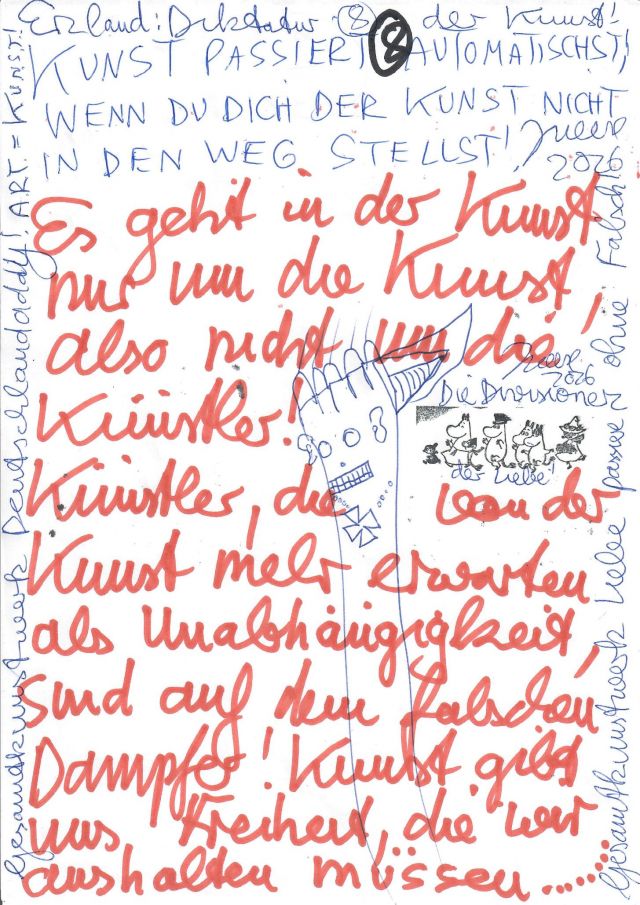 Erzland: Diktatur (8) der Kunst!
KUNST PASSIERT 8 AUTOMATISCHST,
WENN DU DICH DER KUNST NICHT
IN DEN WEG STELLST! Meese
2026
Es geht in der Kunst
nur um die Kunst,
also nicht um die
Künstler!
Künstler, die von der
Kunst mehr erwarten
als Unabhängigkeit,
sind auf dem falschen
Dampfer! Kunst gibt
uns Freiheit, die wir
aushalten müssen.......
Meese
2026
Die Divisionen
der Liebe!
Gesamtkunstwerk Deutschlanddaddy! ART = K.U.N.S.T.!
Gesamtkunstwerk Liebe passee ohne Falsch!